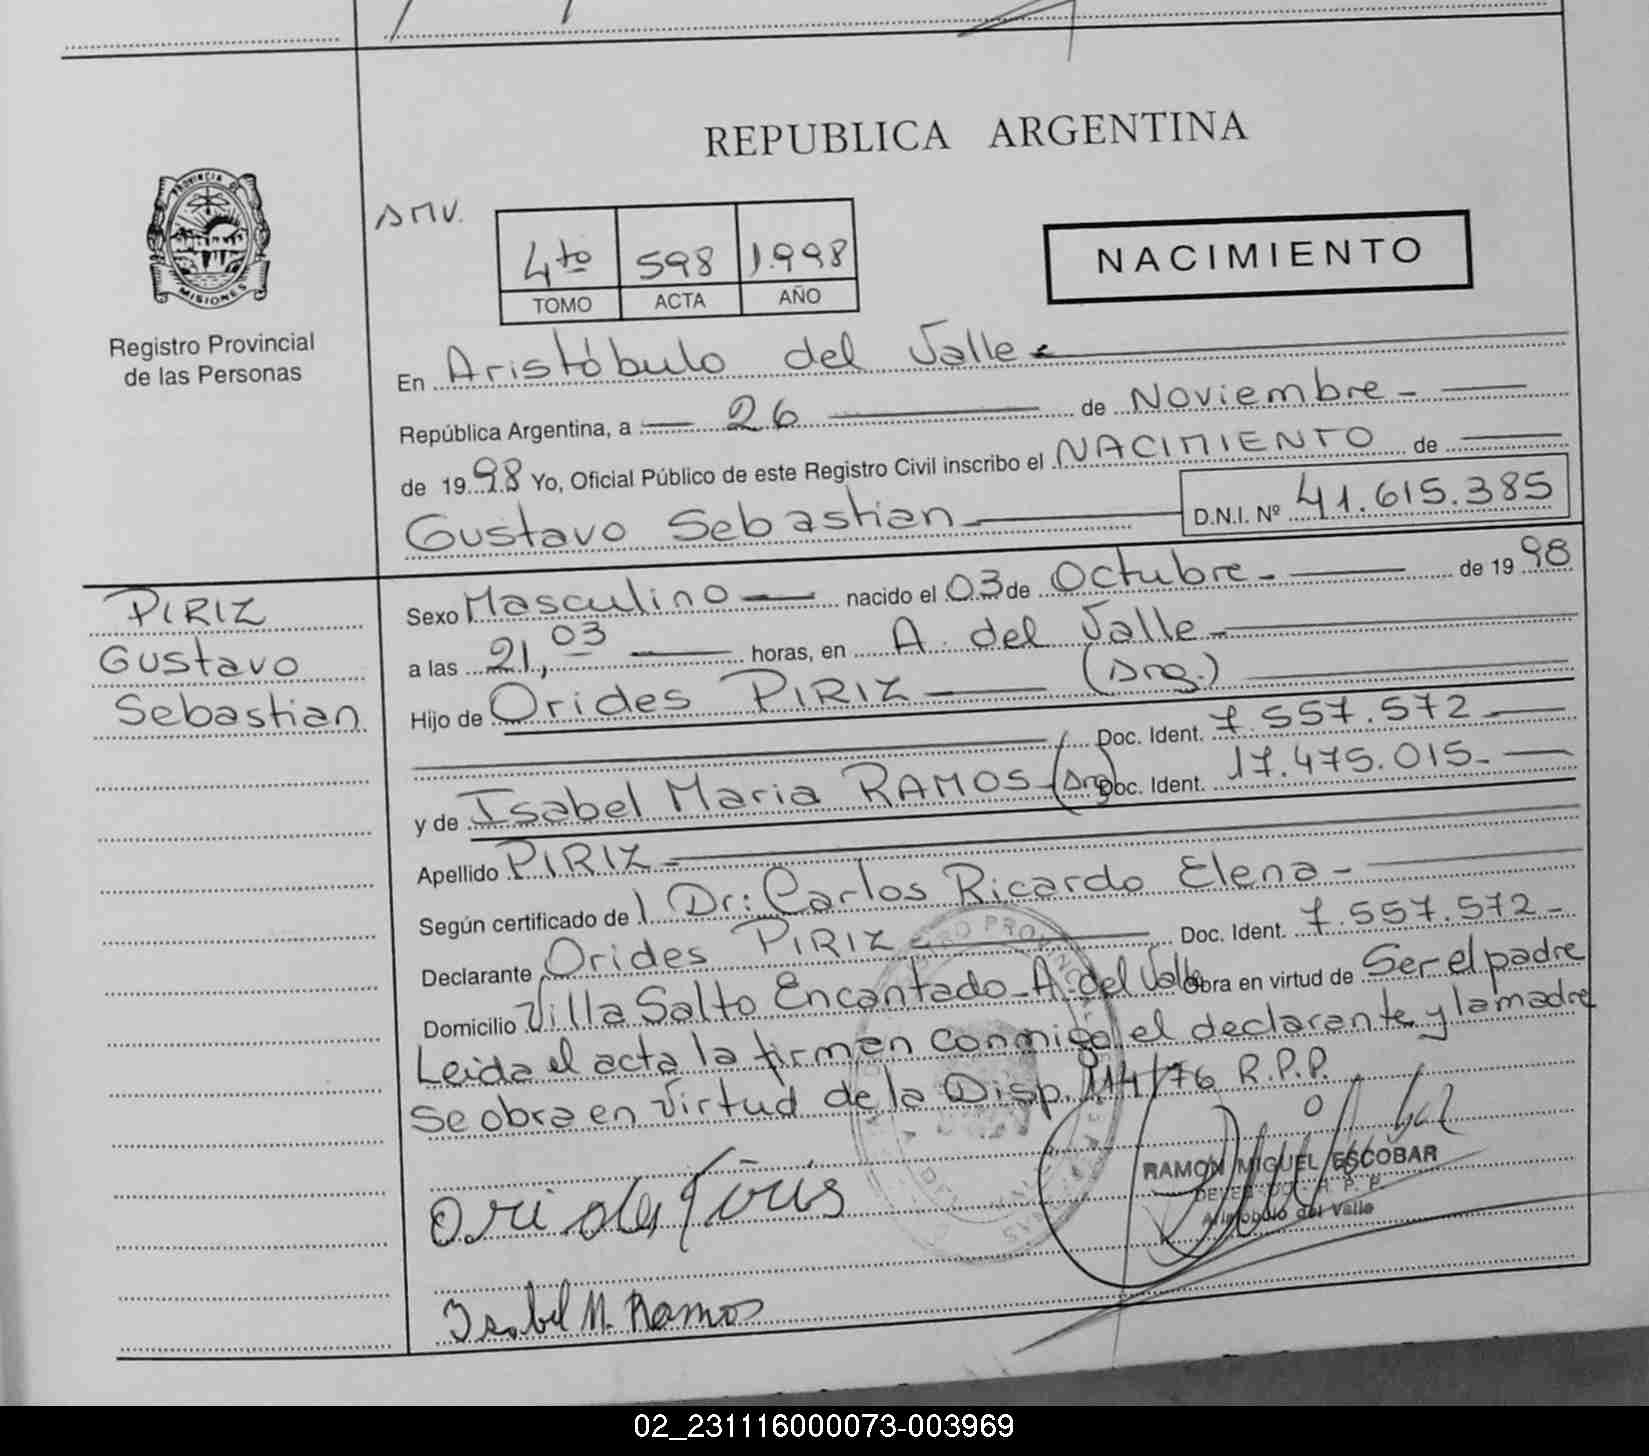 REPUBLICA ARGENTINA
PROVINCIA DE
MISIONES
Registro Provincial
de las Personas
4to 598 1.998
TOMO ACTA AÑO
NACIMIENTO
En Aristóbulo del Valle.-
República Argentina, a 26 de Noviembre.-
de 1998 Yo, Oficial Público de este Registro Civil inscribo el NACIMIENTO de
Gustavo Sebastian D.N.I. Nº 41.615.385
PIRIZ
Gustavo
Sebastian
Sexo Masculino nacido el 03 de Octubre.- de 1998
a las 21,03 horas, en A. del Valle.-
Hijo de Orides PIRIZ (Arg.)
Doc. Ident. 7.557.572
y de Isabel Maria RAMOS (Arg) Doc. Ident. 17.475.015.-
Apellido PIRIZ.-
Según certificado de l Dr: Carlos Ricardo Elena.-
Declarante Orides PIRIZ.- Doc. Ident. 7.557.572.-
Domicilio Villa Salto Encantado-A. del Valle Obra en virtud de Ser el padre
Leida el acta la firman conmigo el declarante y la madre
se obra en virtud de la Disp. 114/76 R.P.P.
RAMON MIGUEL ESCOBAR
DELEGADO - R. P. P.
Aristobulo del Valle
Isabel M. Ramos
02_231116000073-003969